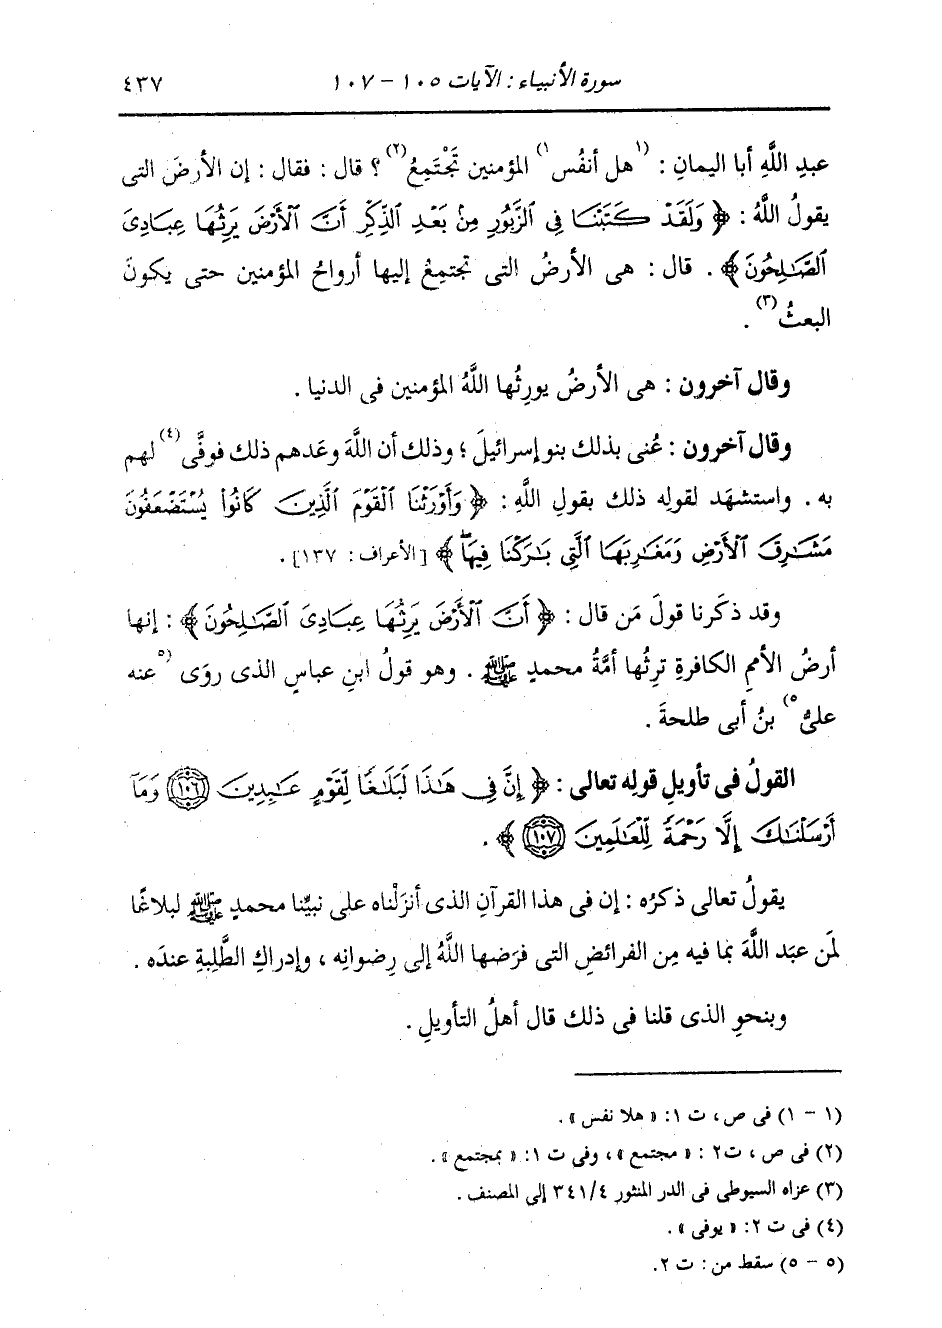 سورة الأنبياء : الآيات ١٠٥ - ١٠٧ ٤٣٧
عبدِ اللَّهِ أبا اليمانِ : (١هل أنفُس١) المؤمنين تَجْتَمِعُ(٢)؟ قال : فقال : إن الأرضَ التى
يقولُ اللَّهُ : ﴿ وَلَقَدْ كَتَبْنَا فِي ٱلزَّبُورِ مِنۢ بَعْدِ ٱلذِّكْرِ أَنَّ ٱلْأَرْضَ يَرِثُهَا عِبَادِىَ
ٱلصَّٰلِحُونَ﴾ . قال : هى الأرضُ التى تجتمِعُ إليها أرواحُ المؤمنين حتى يكونَ
البعثُ(٣) .
وقال آخرون : هى الأرضُ يورِثُها اللَّهُ المؤمنين فى الدنيا .
وقال آخرون : عُنى بذلك بنو إسرائيلَ ؛ وذلك أن اللَّهَ وعَدهم ذلك فوفَّى(٤) لهم
به . واستشهَد لقولِه ذلك بقولِ اللَّهِ : ﴿ وَأَوْرَثْنَا ٱلْقَوْمَ ٱلَّذِينَ كَانُوا۟ يُسْتَضْعَفُونَ
مَشَٰرِقَ ٱلْأَرْضِ وَمَغَٰرِبَهَا ٱلَّتِي بَٰرَكْنَا فِيهَاۖ ﴾ [الأعراف : ١٣٧] .
وقد ذكَرنا قولَ مَن قال : ﴿ أَنَّ ٱلْأَرْضَ يَرِثُهَا عِبَادِىَ ٱلصَّٰلِحُونَ﴾ : إنها
أرضُ الأممِ الكافرةِ ترِثُها أمَّةُ محمدٍ ﷺ . وهو قولُ ابنِ عباسٍ الذى روَى (٥عنه
علىُّ٥) بنُ أبى طلحةَ .
القولُ فى تأويلِ قولِه تعالى : ﴿ إِنَّ فِى هَٰذَا لَبَلَٰغًا لِّقَوْمٍ عَٰبِدِينَ ١٠٦ وَمَآ
أَرْسَلْنَٰكَ إِلَّا رَحْمَةً لِّلْعَٰلَمِينَ ١٠٧ ﴾ .
يقولُ تعالى ذكرُه : إن فى هذا القرآنِ الذى أنزَلْناه على نبيِّنا محمدٍ ﷺ لبلاغًا
لمَن عبَد اللَّهَ بما فيه مِن الفرائضِ التى فرَضها اللَّهُ إلى رِضوانِه ، وإدراكِ الطَّلِبةِ عندَه .
وبنحوِ الذى قلنا فى ذلك قال أهلُ التأويلِ .
(١ - ١) فى ص، ت ١: « هلا نفس » .
(٢) فى ص ، ت٢ : « مجتمع » ، وفى ت ١: « بمجتمع » .
(٣) عزاه السيوطى فى الدر المنثور ٣٤١/٤ إلى المصنف .
(٤) فى ت ٢: « يوفى » .
(٥ - ٥) سقط من : ت ٢.